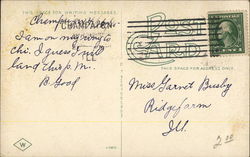 THIS SPACE FOR WRITING MESSAGES
POST
CARD
THIS SPACE FOR ADDRESS ONLY
I am on my way to
chi. I guess I will
land this p.m.
B Good
Miss Garnet Busby
Ridgefarm
Ill.
W
2.00